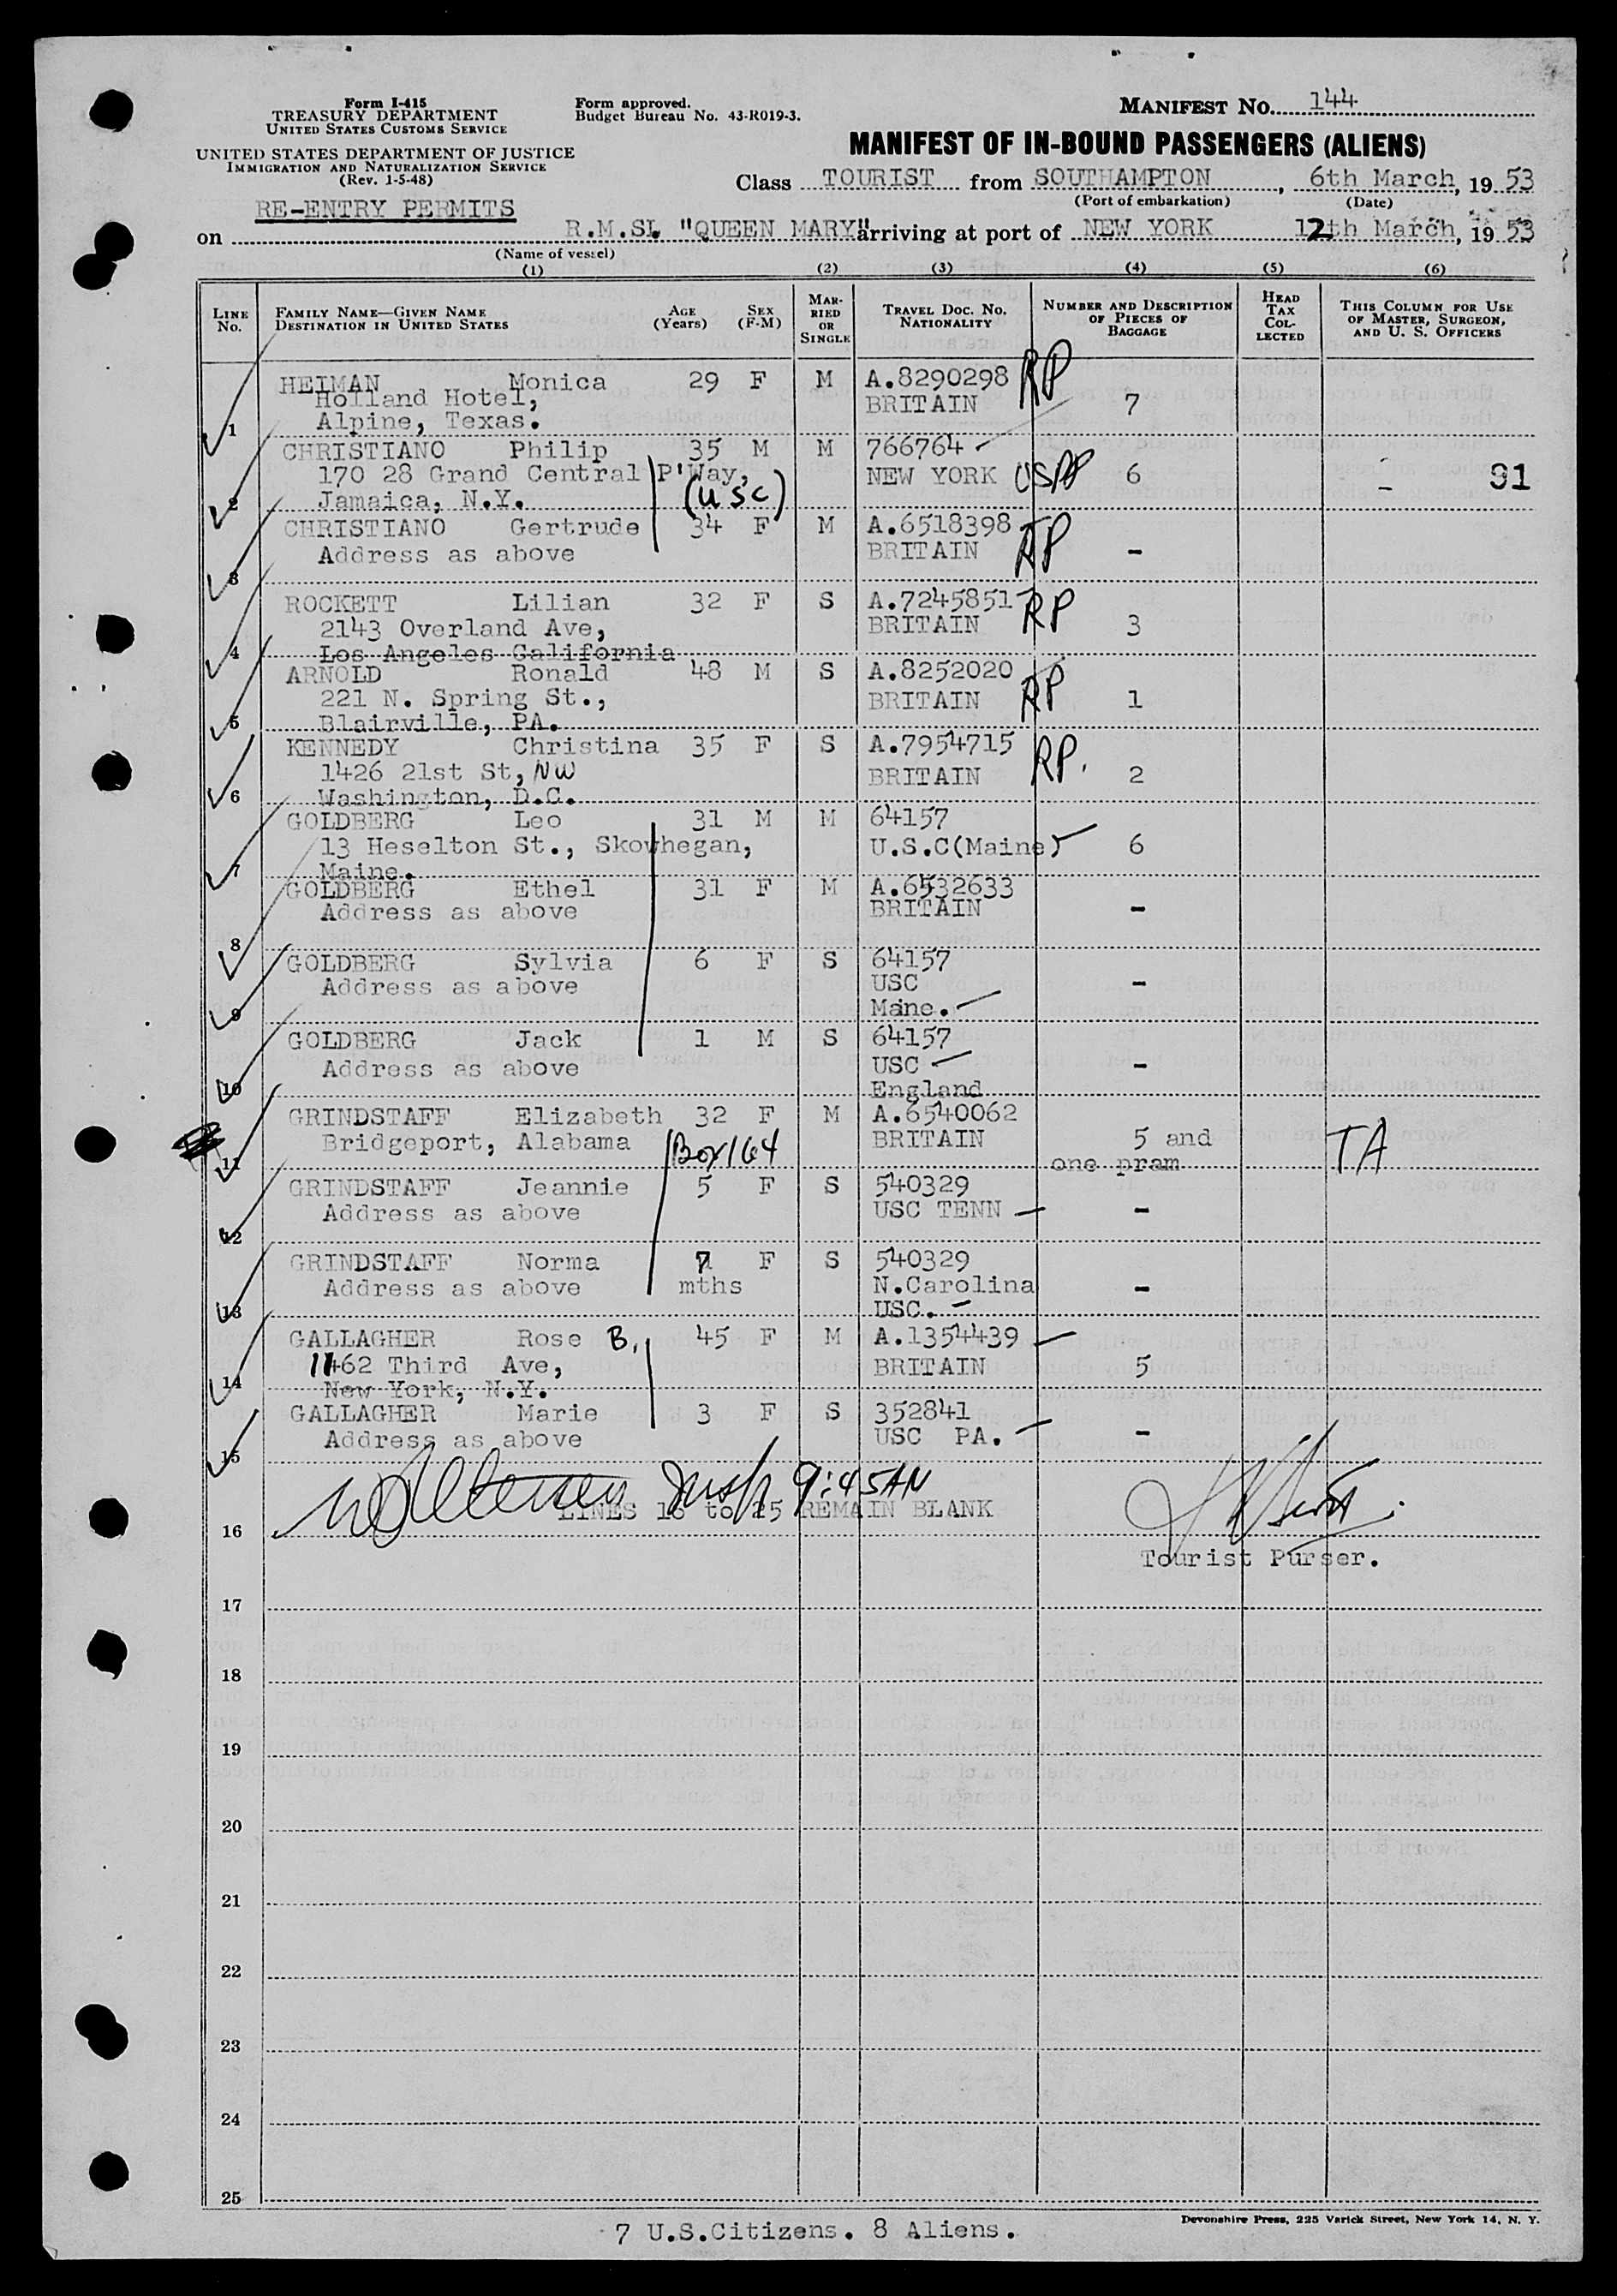 Form I-415
TREASURY DEPARTMENT
UNITED STATES CUSTOMS SERVICE
UNITED STATES DEPARTMENT OF JUSTICE
IMMIGRATION AND NATURALIZATION SERVICE
(Rev. 1-5-48)
Form approved.
Budget Bureau No. 43-R019-3.
MANIFEST NO. 144
MANIFEST OF IN-BOUND PASSENGERS (ALIENS)
Class TOURIST from SOUTHAMPTON, 6th March, 19 53
(Port of embarkation) (Date)
RE-ENTRY PERMITS
on R.M.S. "QUEEN MARY" arriving at port of NEW YORK 12th March, 19 53
(Name of vessel)
(1) (2) (3) (4) (5) (6)
LINE No. FAMILY NAME—GIVEN NAME DESTINATION IN UNITED STATES AGE (Years) SEX (F-M) MARRIED OR SINGLE TRAVEL DOC. NO. NATIONALITY NUMBER AND DESCRIPTION OF PIECES OF BAGGAGE HEAD TAX COLLECTED THIS COLUMN FOR USE OF MASTER, SURGEON, AND U. S. OFFICERS
HEIMAN Monica 29 F M A.8290298 RP
Holland Hotel, BRITAIN 7
1 Alpine, Texas.
CHRISTIANO Philip 35 M M 766764
170 28 Grand Central P'Way, NEW YORK USPP 6 - 91
2 Jamaica, N.Y. (USC)
CHRISTIANO Gertrude 34 F M A.6518398 RP
Address as above BRITAIN -
3
ROCKETT Lilian 32 F S A.7245851 RP
2143 Overland Ave, BRITAIN 3
4 Los Angeles California
ARNOLD Ronald 48 M S A.8252020
221 N. Spring St., BRITAIN RP 1
5 Blairville, PA.
KENNEDY Christina 35 F S A.7954715
1426 21st St, NW BRITAIN RP. 2
6 Washington, D.C.
GOLDBERG Leo 31 M M 64157
13 Heselton St., Skowhegan, U.S.C(Maine) 6
7 Maine.
GOLDBERG Ethel 31 F M A.6532633
Address as above BRITAIN -
8
GOLDBERG Sylvia 6 F S 64157
Address as above USC -
9 Maine.
GOLDBERG Jack 1 M S 64157
Address as above USC -
10 England
GRINDSTAFF Elizabeth 32 F M A.6540062
Bridgeport, Alabama Box 164 BRITAIN 5 and TA
11 one pram
GRINDSTAFF Jeannie 5 F S 540329
Address as above USC TENN -
12
GRINDSTAFF Norma 7 F S 540329
Address as above mths N.Carolina -
13 USC.
GALLAGHER Rose B. 45 F M A.1354439
1162 Third Ave, BRITAIN 5
14 New York, N.Y.
GALLAGHER Marie 3 F S 352841
Address as above USC PA. -
15
Insp 9:45AM
LINES 16 to 25 REMAIN BLANK
16
Tourist Purser.
17
18
19
20
21
22
23
24
25
7 U.S.Citizens. 8 Aliens.
Devonshire Press, 225 Varick Street, New York 14, N. Y.